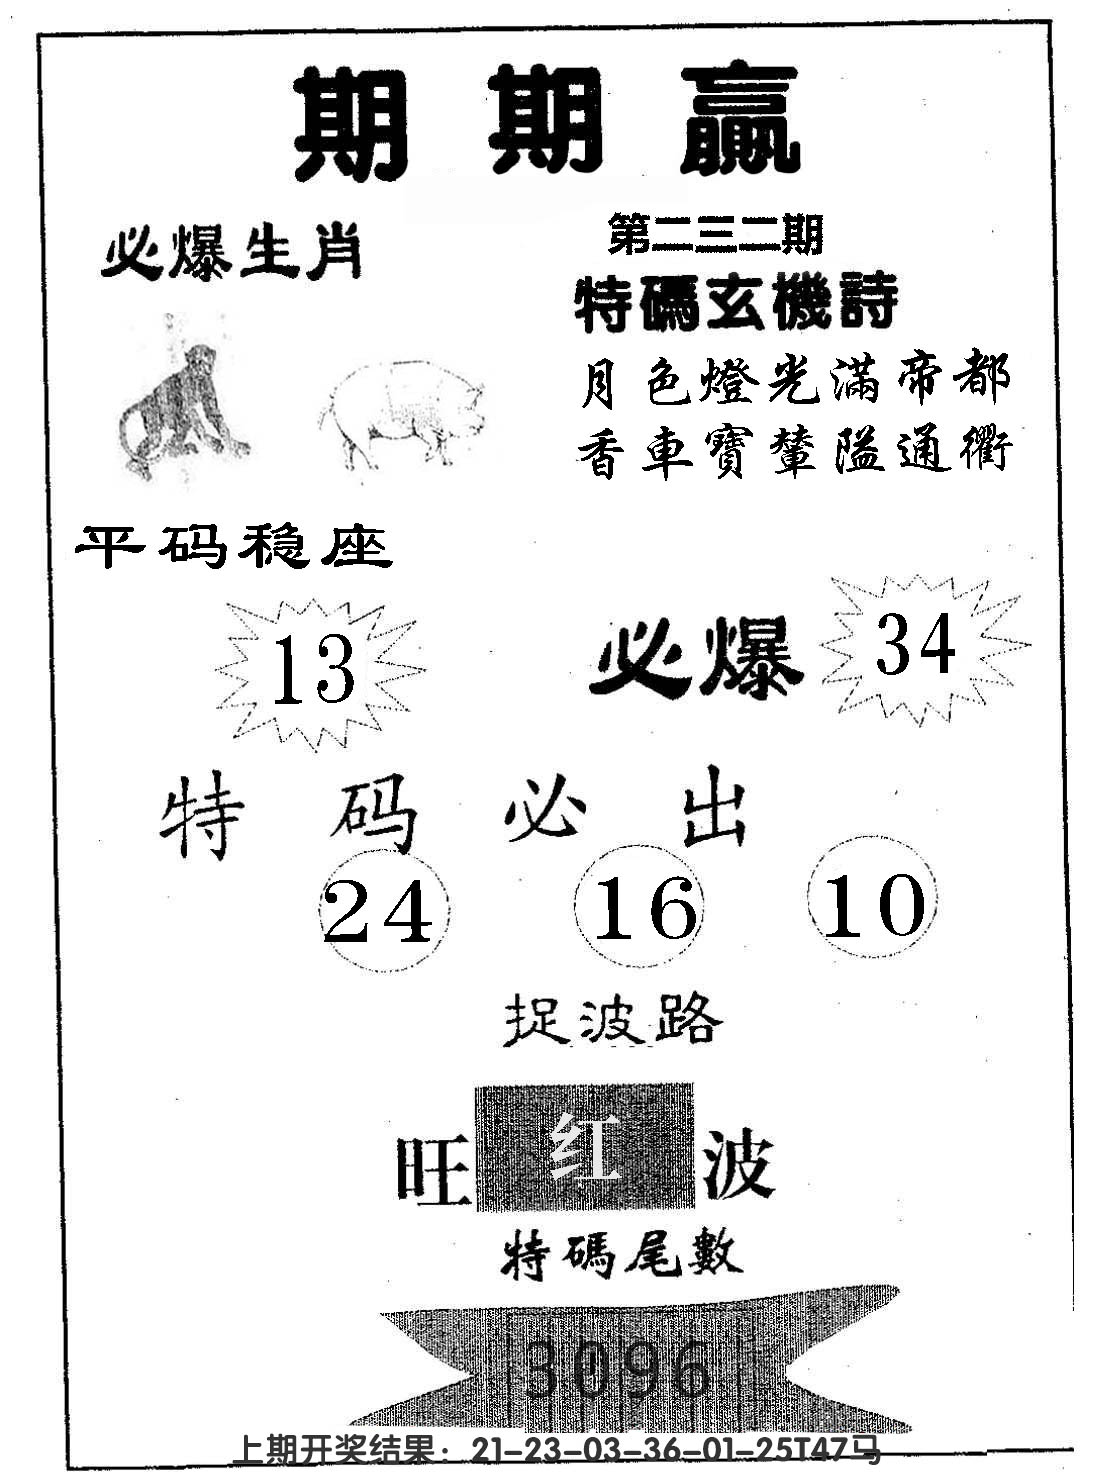 期期贏
必爆生肖
第二三二期
特碼玄機詩
月色燈光滿帝都
香車寶輦隘通衢
平码稳座
13
必爆
34
特码必出
24 16 10
捉波路
旺红波
特碼尾數
3096
上期开奖结果：21-23-03-36-01-25T47马